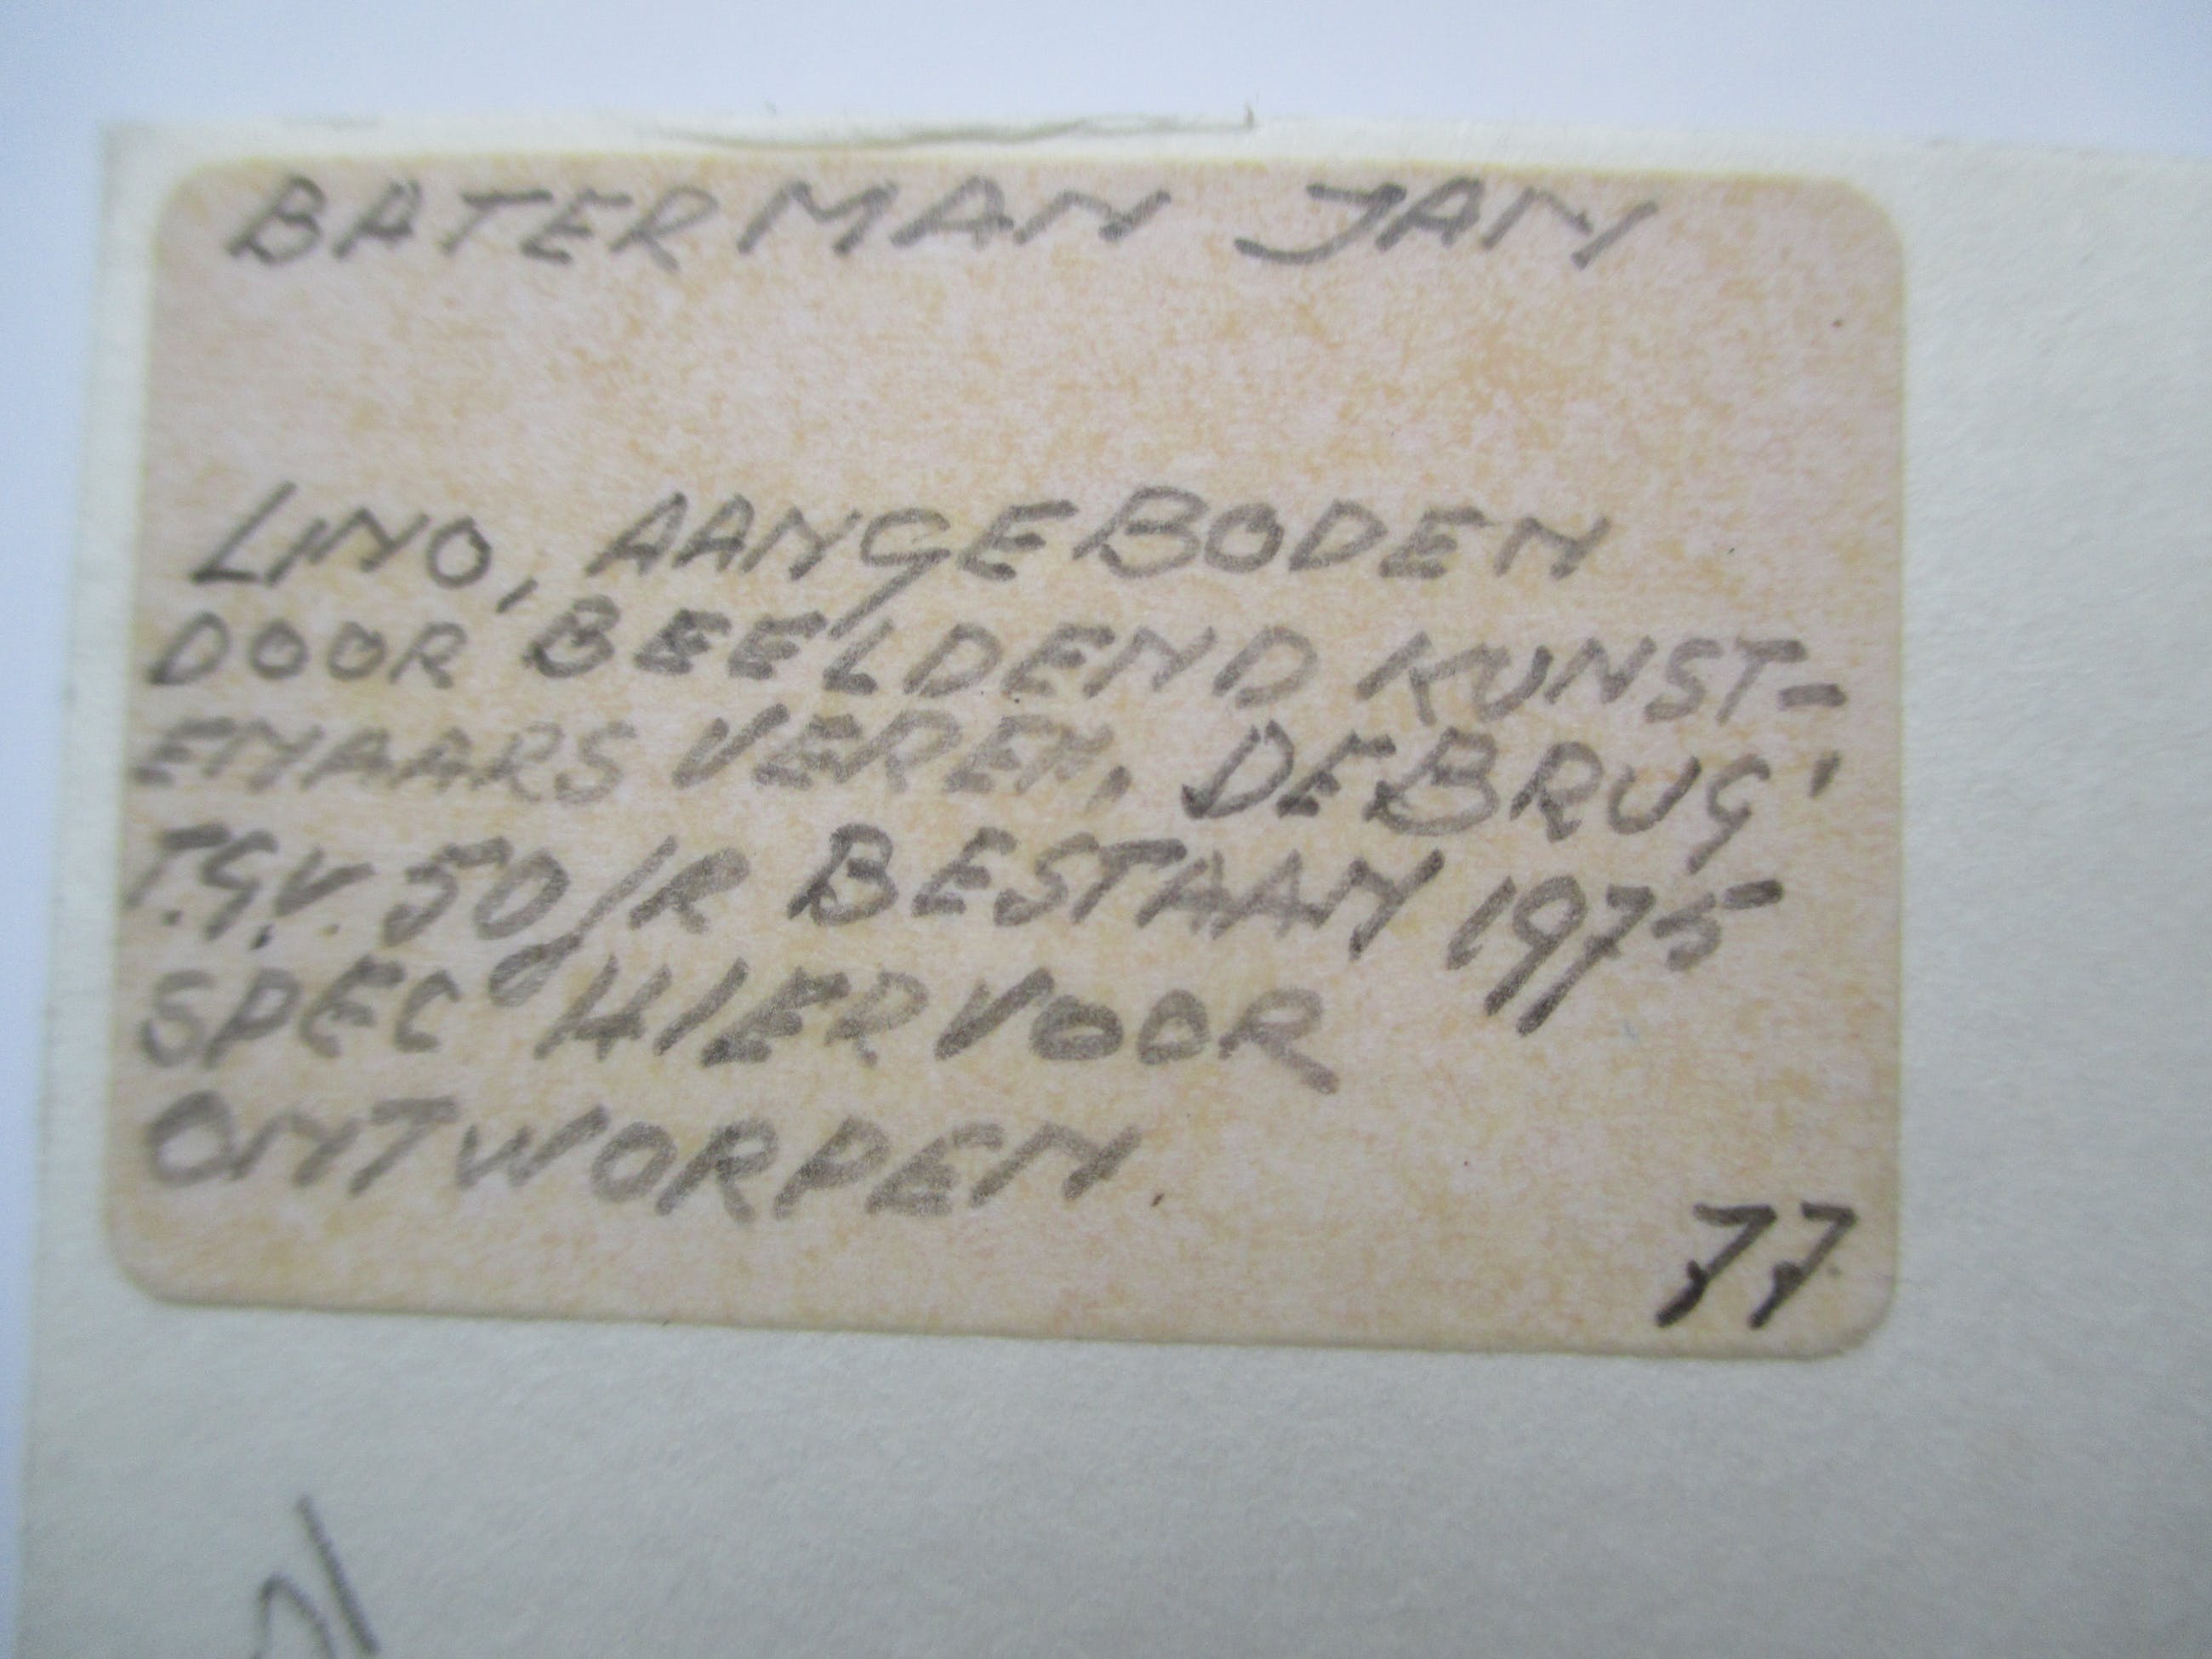 BATERMAN JAN
LINO, AANGEBODEN
DOOR BEELDEND KUNST=
ENAARS VEREN, DE BRUG'
T.G.V. 50 JR BESTAAN 1975
SPEC HIERVOOR
ONTWORPEN.
77